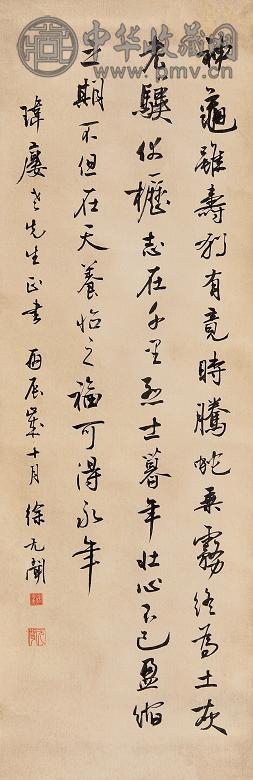 中华收藏网
www.pmv.cn
神龜雖壽猶有竟時騰蛇乘霧終為土灰
老驥伏櫪志在千里烈士暮年壯心不已盈縮
之期不但在天養怡之福可得永年
瑋老先生正書 丙辰歲十月 徐无聞